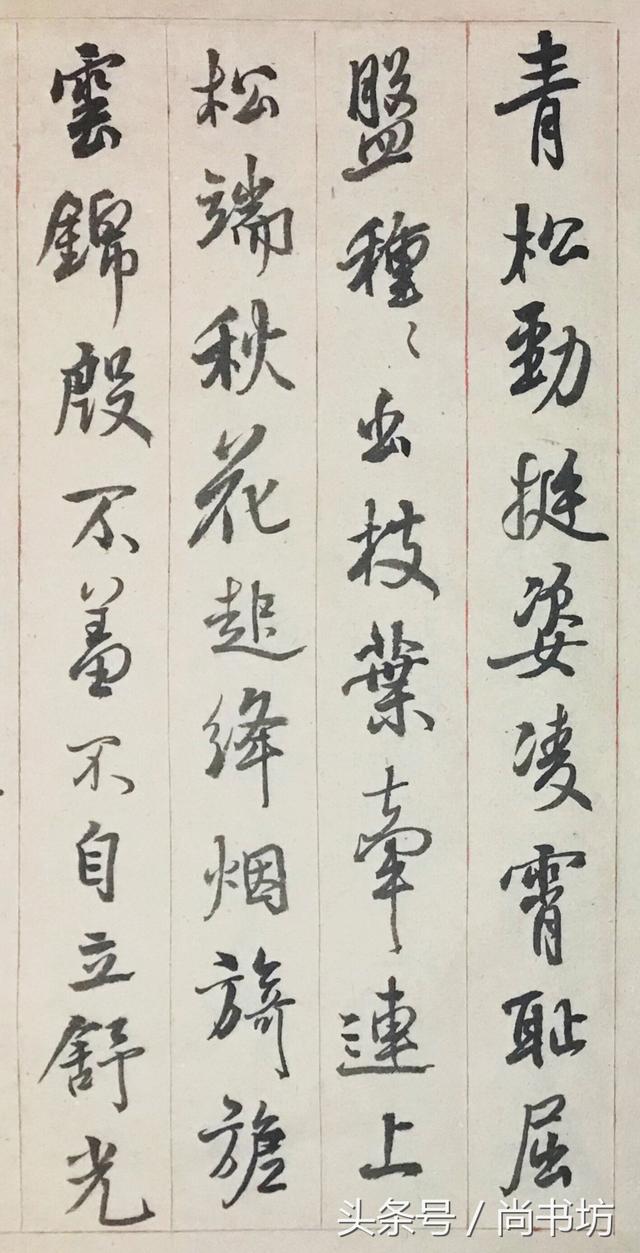 青松勁挺姿凌霄耻屈
盤種〻出枝葉牽連上
松端秋花起絳烟旖旎
雲錦殷不羞不自立舒光
头条号 / 尚书坊